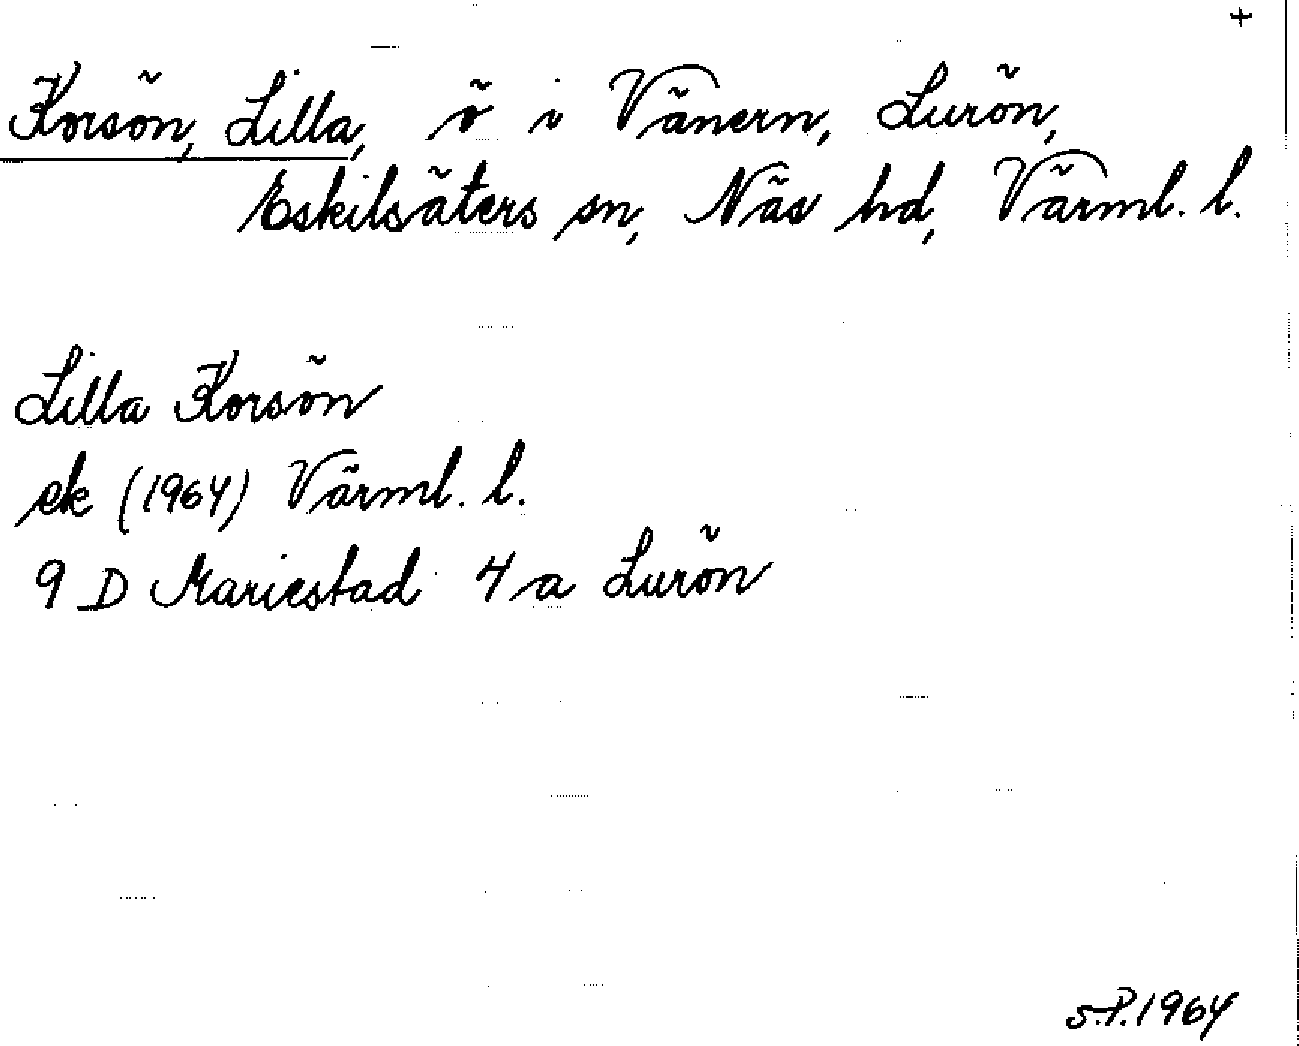 +
Korsön, Lilla, ö i Vänern, Lurön,
Eskilsäters sn, Näs hd, Värml. l.
Lilla Korsön
ek (1964) Värml. l.
9 D Mariestad 4 a Lurön
S.P. 1964